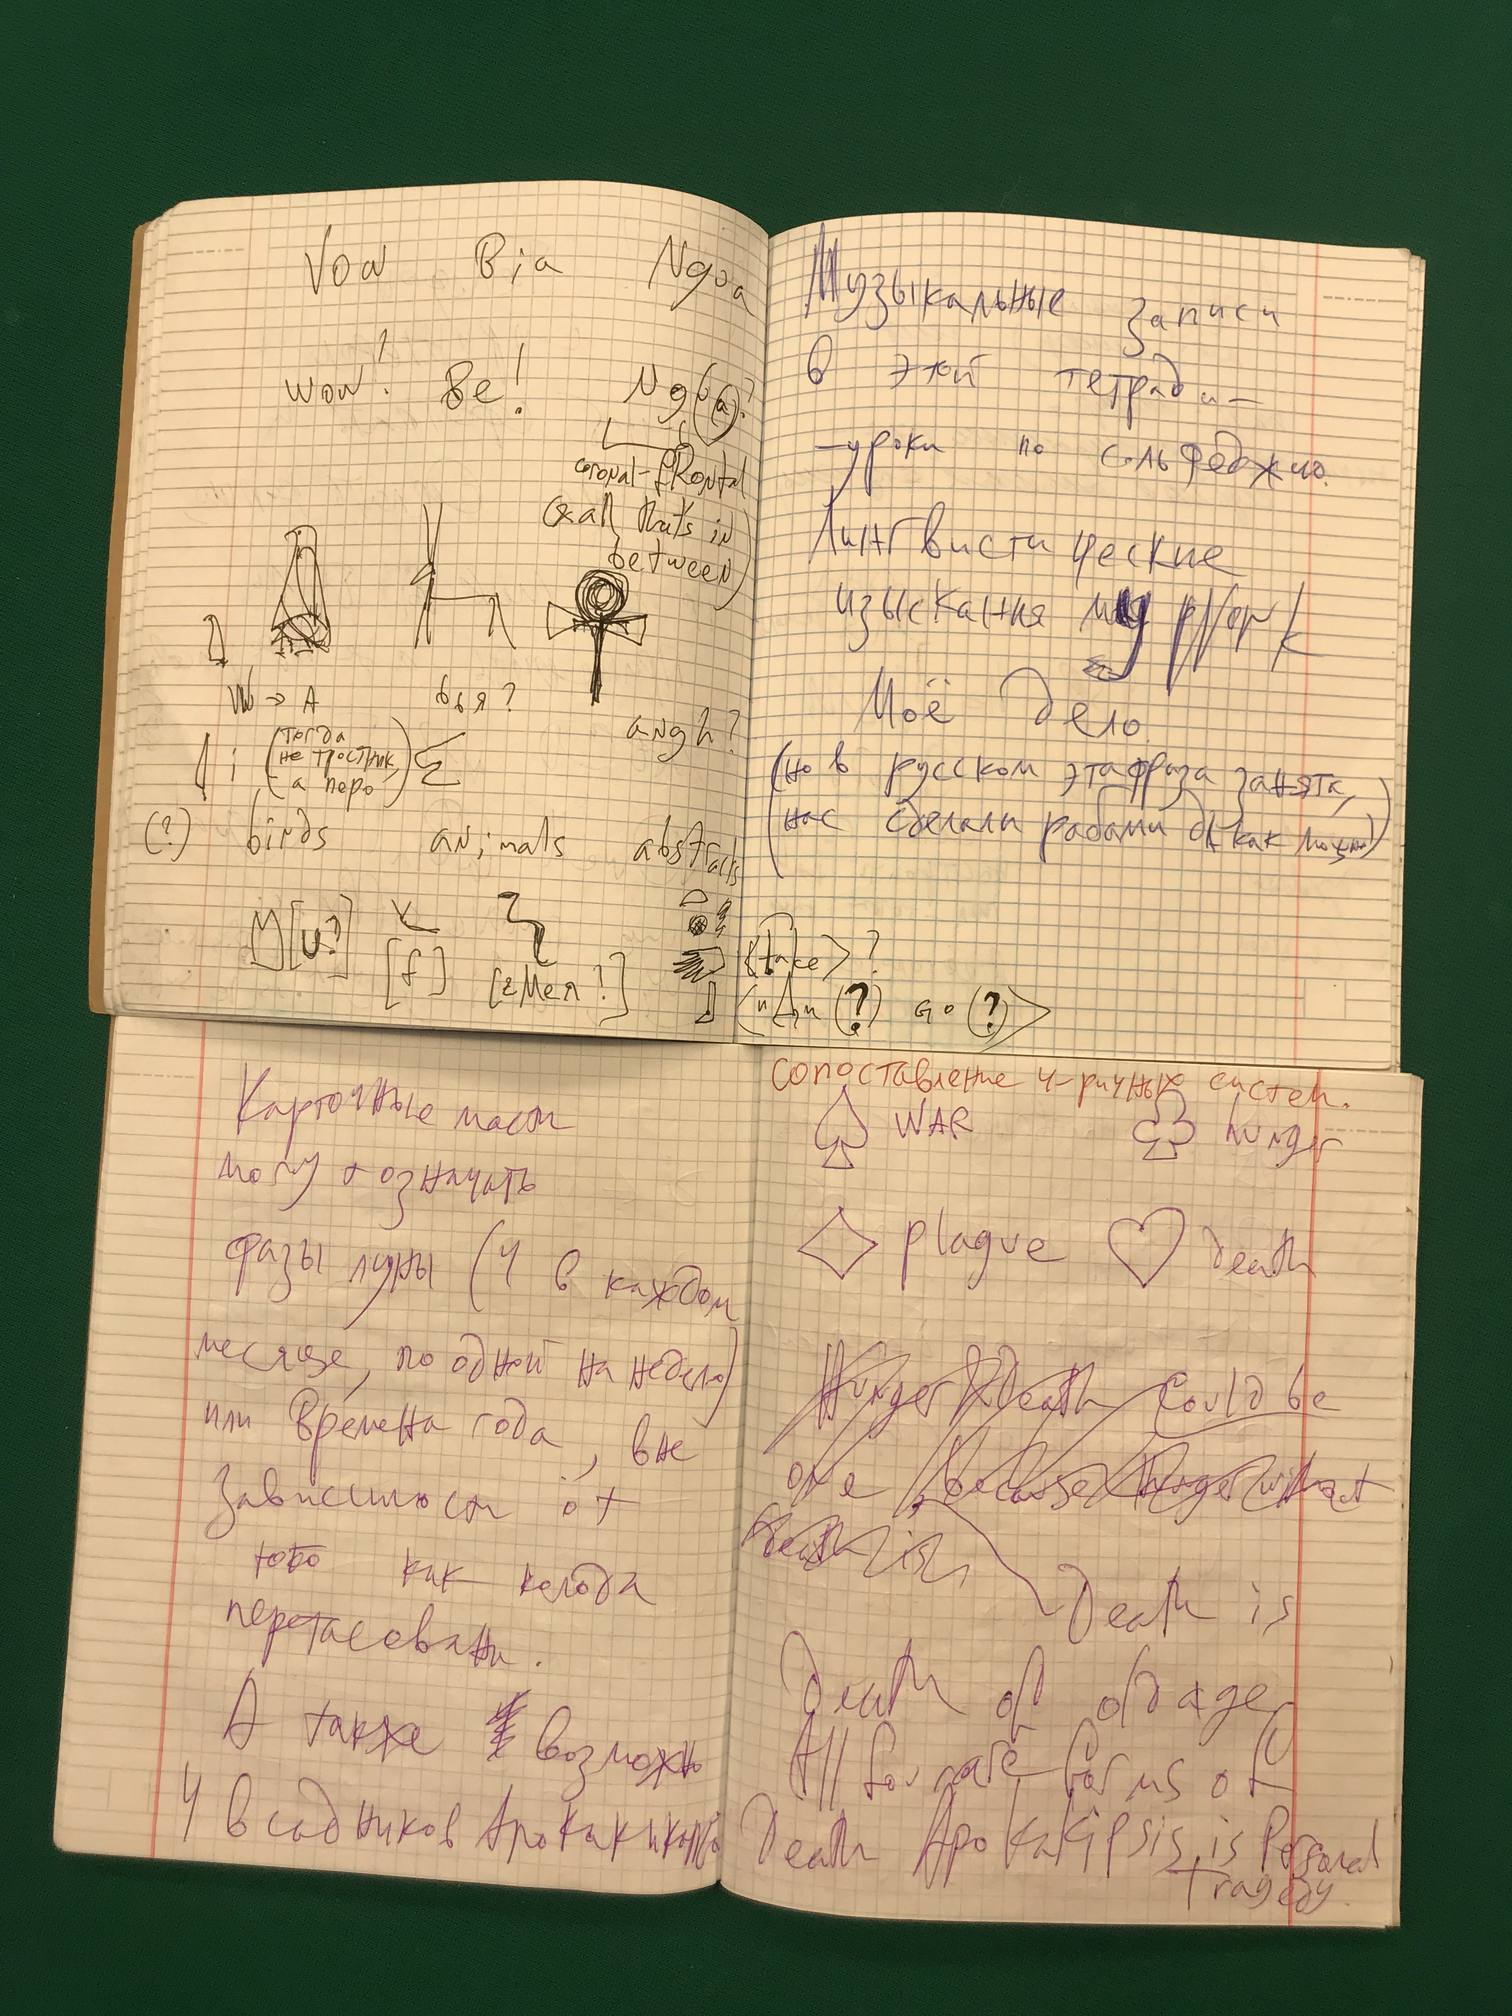 Vow Bia Ngoa
wow! Be! Ng(a)?
coronal-frontal
(& all that's in
between)
→ A бья? angh?
i (тогда
не тростник,
а перо)
(?) birds animals abstracts
[u?] [f] [змея!]
<take>?
(?) GO (?)>
Музыкальные записи
в этой тетради —
— уроки по сольфеджио.
Лингвистические
изыскания my work
Моё дело.
(но в русском эта фраза занята,
нас сделали рабами как
Карточные масти
могут означать
фазы луны (4 в каждом
месяце, по одной на неделю)
или времена года, вне
зависимости от
того как колода
перетасована.
А также возможно
4 всадников
Сопоставление 4-ричных систем.
♠ WAR ♣ hunger
◇ plague ♡ death
Hunger & Death could be
one because Hunger without
death is
Death is
Death of old age
All four are forms of
Death Apokakipsis is Personal
tragedy.